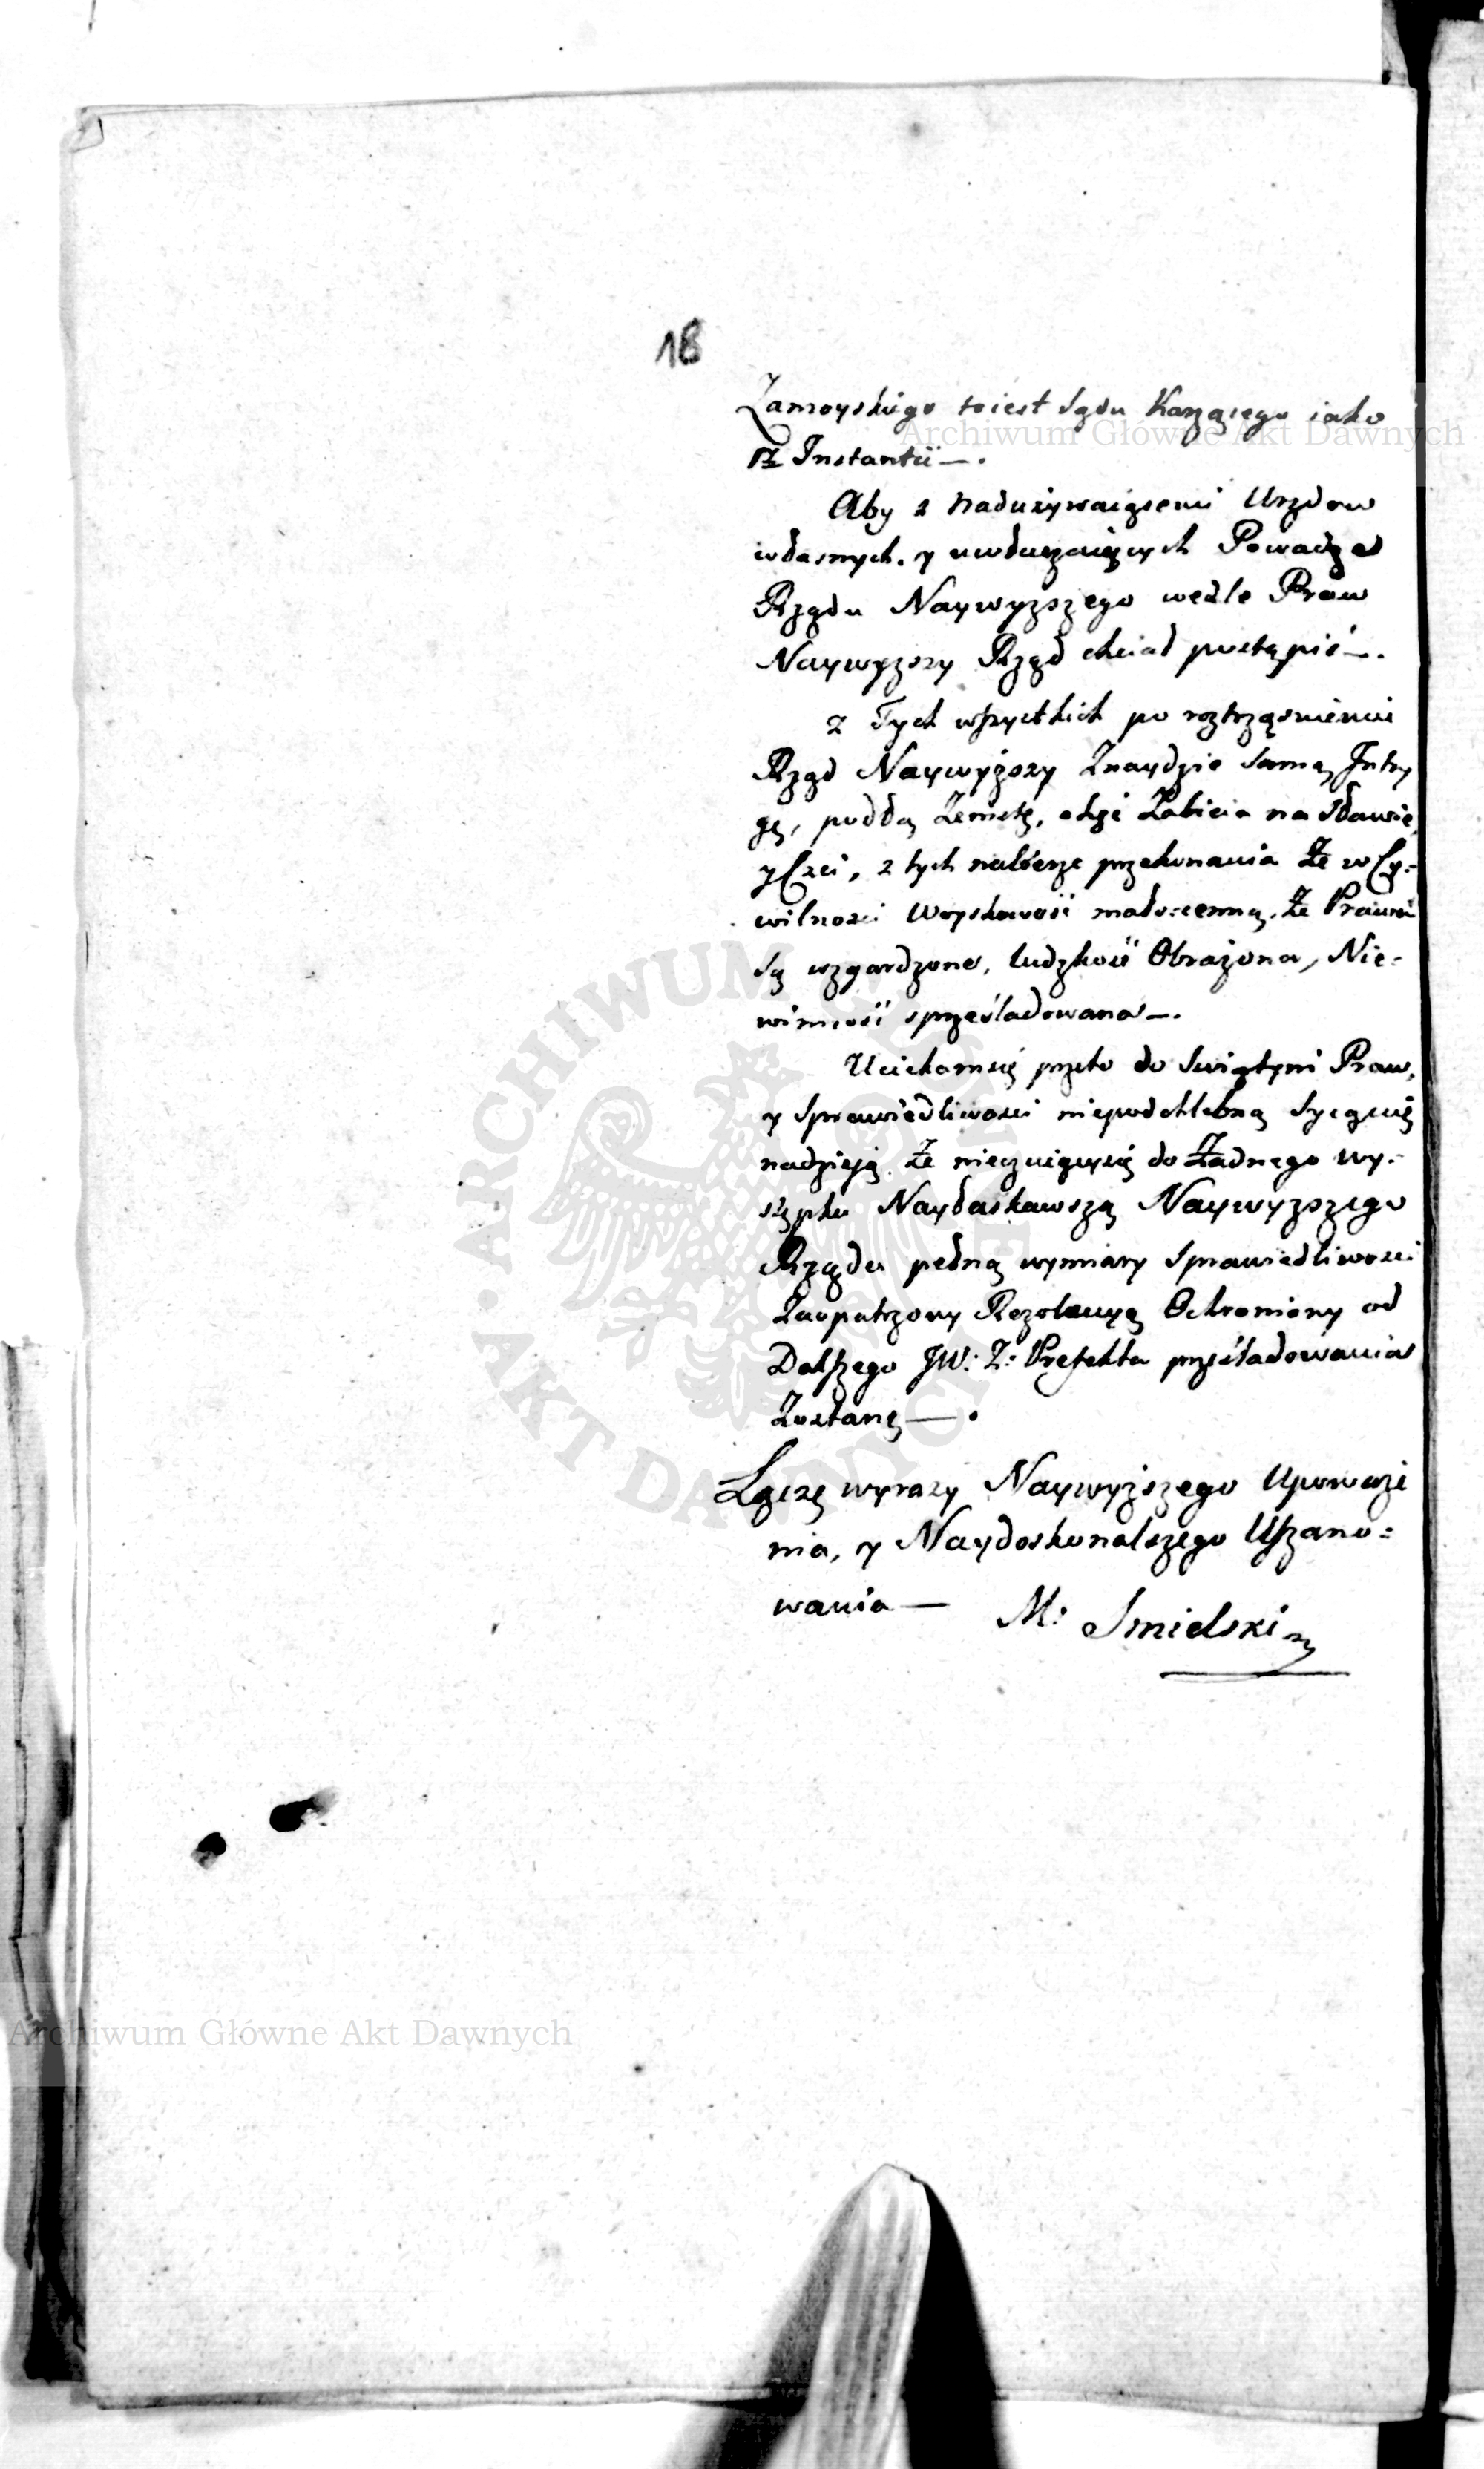 18
Zamoyskiego to iest Sądu Karzącego iako
Instantii —.
Aby z nadużywaiącemi Urzędow
własnych. y uwłuczaiących Powadze
Rządu Naywyzszego wedle Praw
Naywyzszy Rząd chciał postąpić —.
z Tych wszystkich po roztrząsnieniu
Rząd Naywyższy Znaydzie samą Intry
gę, podłą Zemstę, chęć Zabicia na Sławie
y Czci, z tych nabierze przekonania Że w Cy=
wilnosci Woyskowość mało cenną. Że Prawa
Są wzgardzone, ludzkość Obrażona, Nie=
winność prześladowana —.
Uciekam się przeto do Swiątyni Praw,
y Sprawiedliwosci niepodchlebną Sycąc się
nadzieją Że nieczuiący się do Żadnego wy=
stępku Nayłaskawszą Naywyzszego
Rządu pełną wymiary Sprawiedliwosci
Zaopatrzony Rezolucyą Ochroniony od
Dalszego JW: Z: Prefekta prześladowania
Zostanę —.
Łączę wyrazy Naywyższego Upoważe
nia, y Naydoskonalszego Uszano=
wania — M: Smielski
Archiwum Główne Akt Dawnych
ARCHIWUM GŁÓWNE AKT DAWNYCH
Archiwum Główne Akt Dawnych